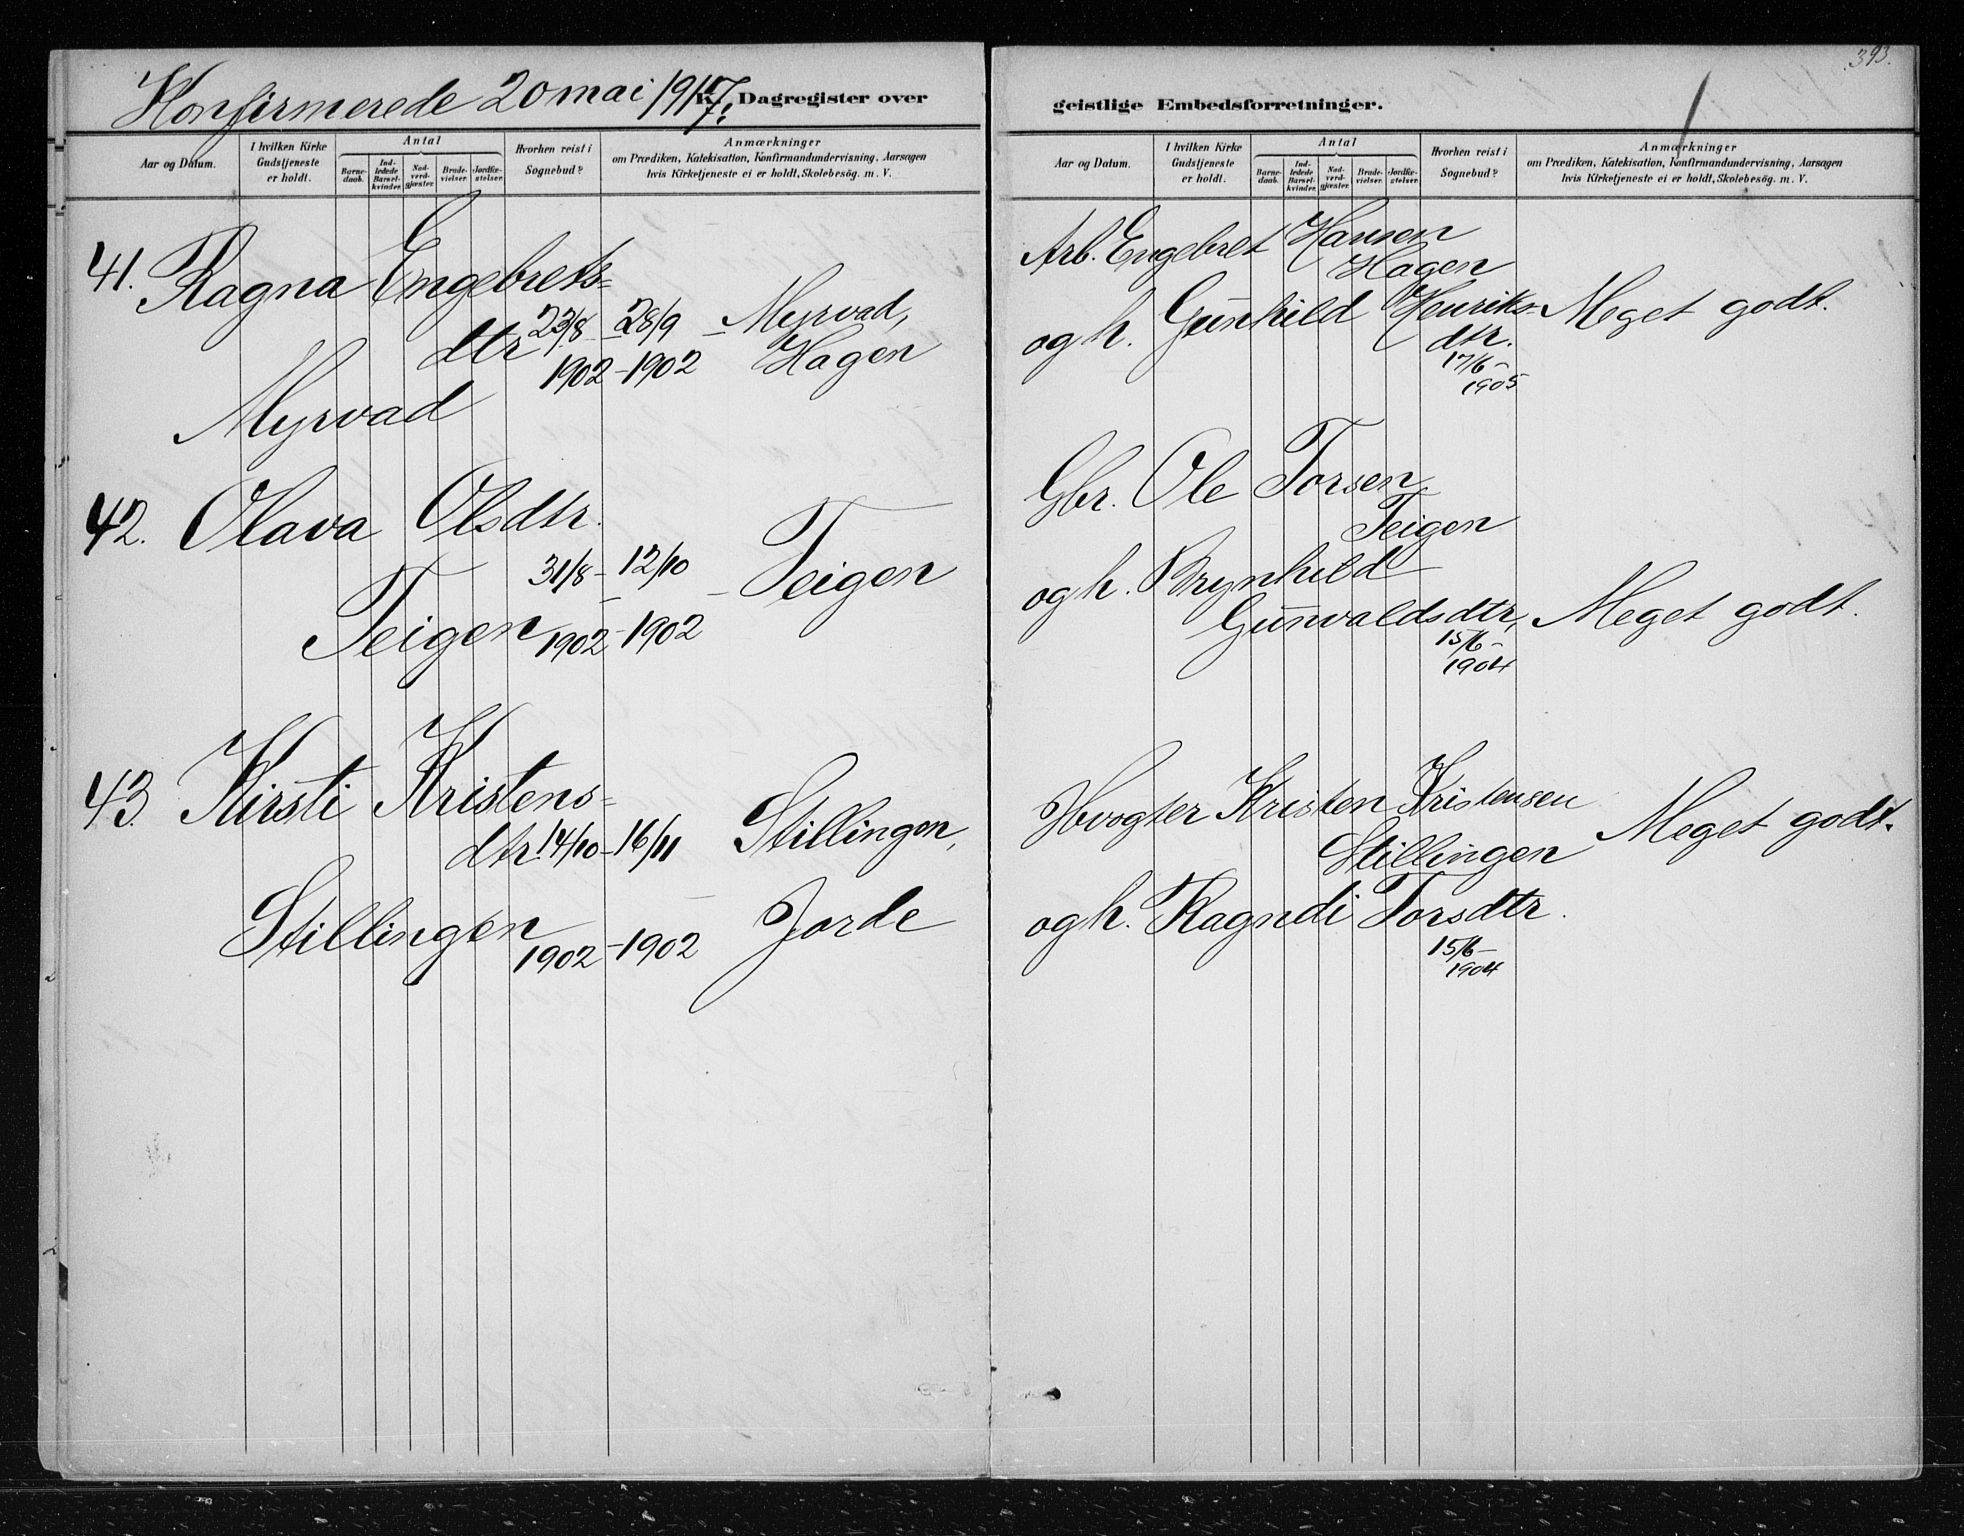 393.
Konfirmerede 20 mai 1917.
K. Dagregister over
geistlige Embedsforretninger.
Aar og Datum.
I hvilken Kirke Gudstjeneste er holdt.
Antal
Barnedaab.
Indledede Barselkvinder.
Nadverdgjæster.
Brudevielser.
Jordfæstelser.
Hvorhen reist i Sognebud?
Anmærkninger
om Prædiken, Katekisation, Konfirmandundervisning, Aarsagen
hvis Kirketjeneste ei er holdt, Skolebesøg. m. V.
41. Ragna Engebrets-
dtr 23/8 - 28/9 - Myrvad,
1902 - 1902 Hagen
Myrvad
42. Olava Olsdtr.
31/8 - 12/10 - Teigen
Teigen 1902 - 1902
43. Kirsti Kristens-
dtr. 14/10 - 16/11 Stillingen,
Stillingen
1902 - 1902 Jorde
Aar og Datum.
I hvilken Kirke Gudstjeneste er holdt.
Antal
Barnedaab.
Indledede Barselkvinder.
Nadverdgjæster.
Brudevielser.
Jordfæstelser.
Hvorhen reist i Sognebud?
Anmærkninger
om Prædiken, Katekisation, Konfirmandundervisning, Aarsagen
hvis Kirketjeneste ei er holdt, Skolebesøg. m. V.
Arb. Engebret Hansen
Hagen
og h. Gunhild Henriks- Meget godt.
dtr.
17/6 -
1905
Gbr. Ole Torsen
Teigen
og h. Brynhild
Gunvaldsdtr, Meget godt.
15/6 -
1904
Kristen Kristensen
Stillingen Meget godt.
og h. Ragndi Torsdtr.
15/6 -
1904